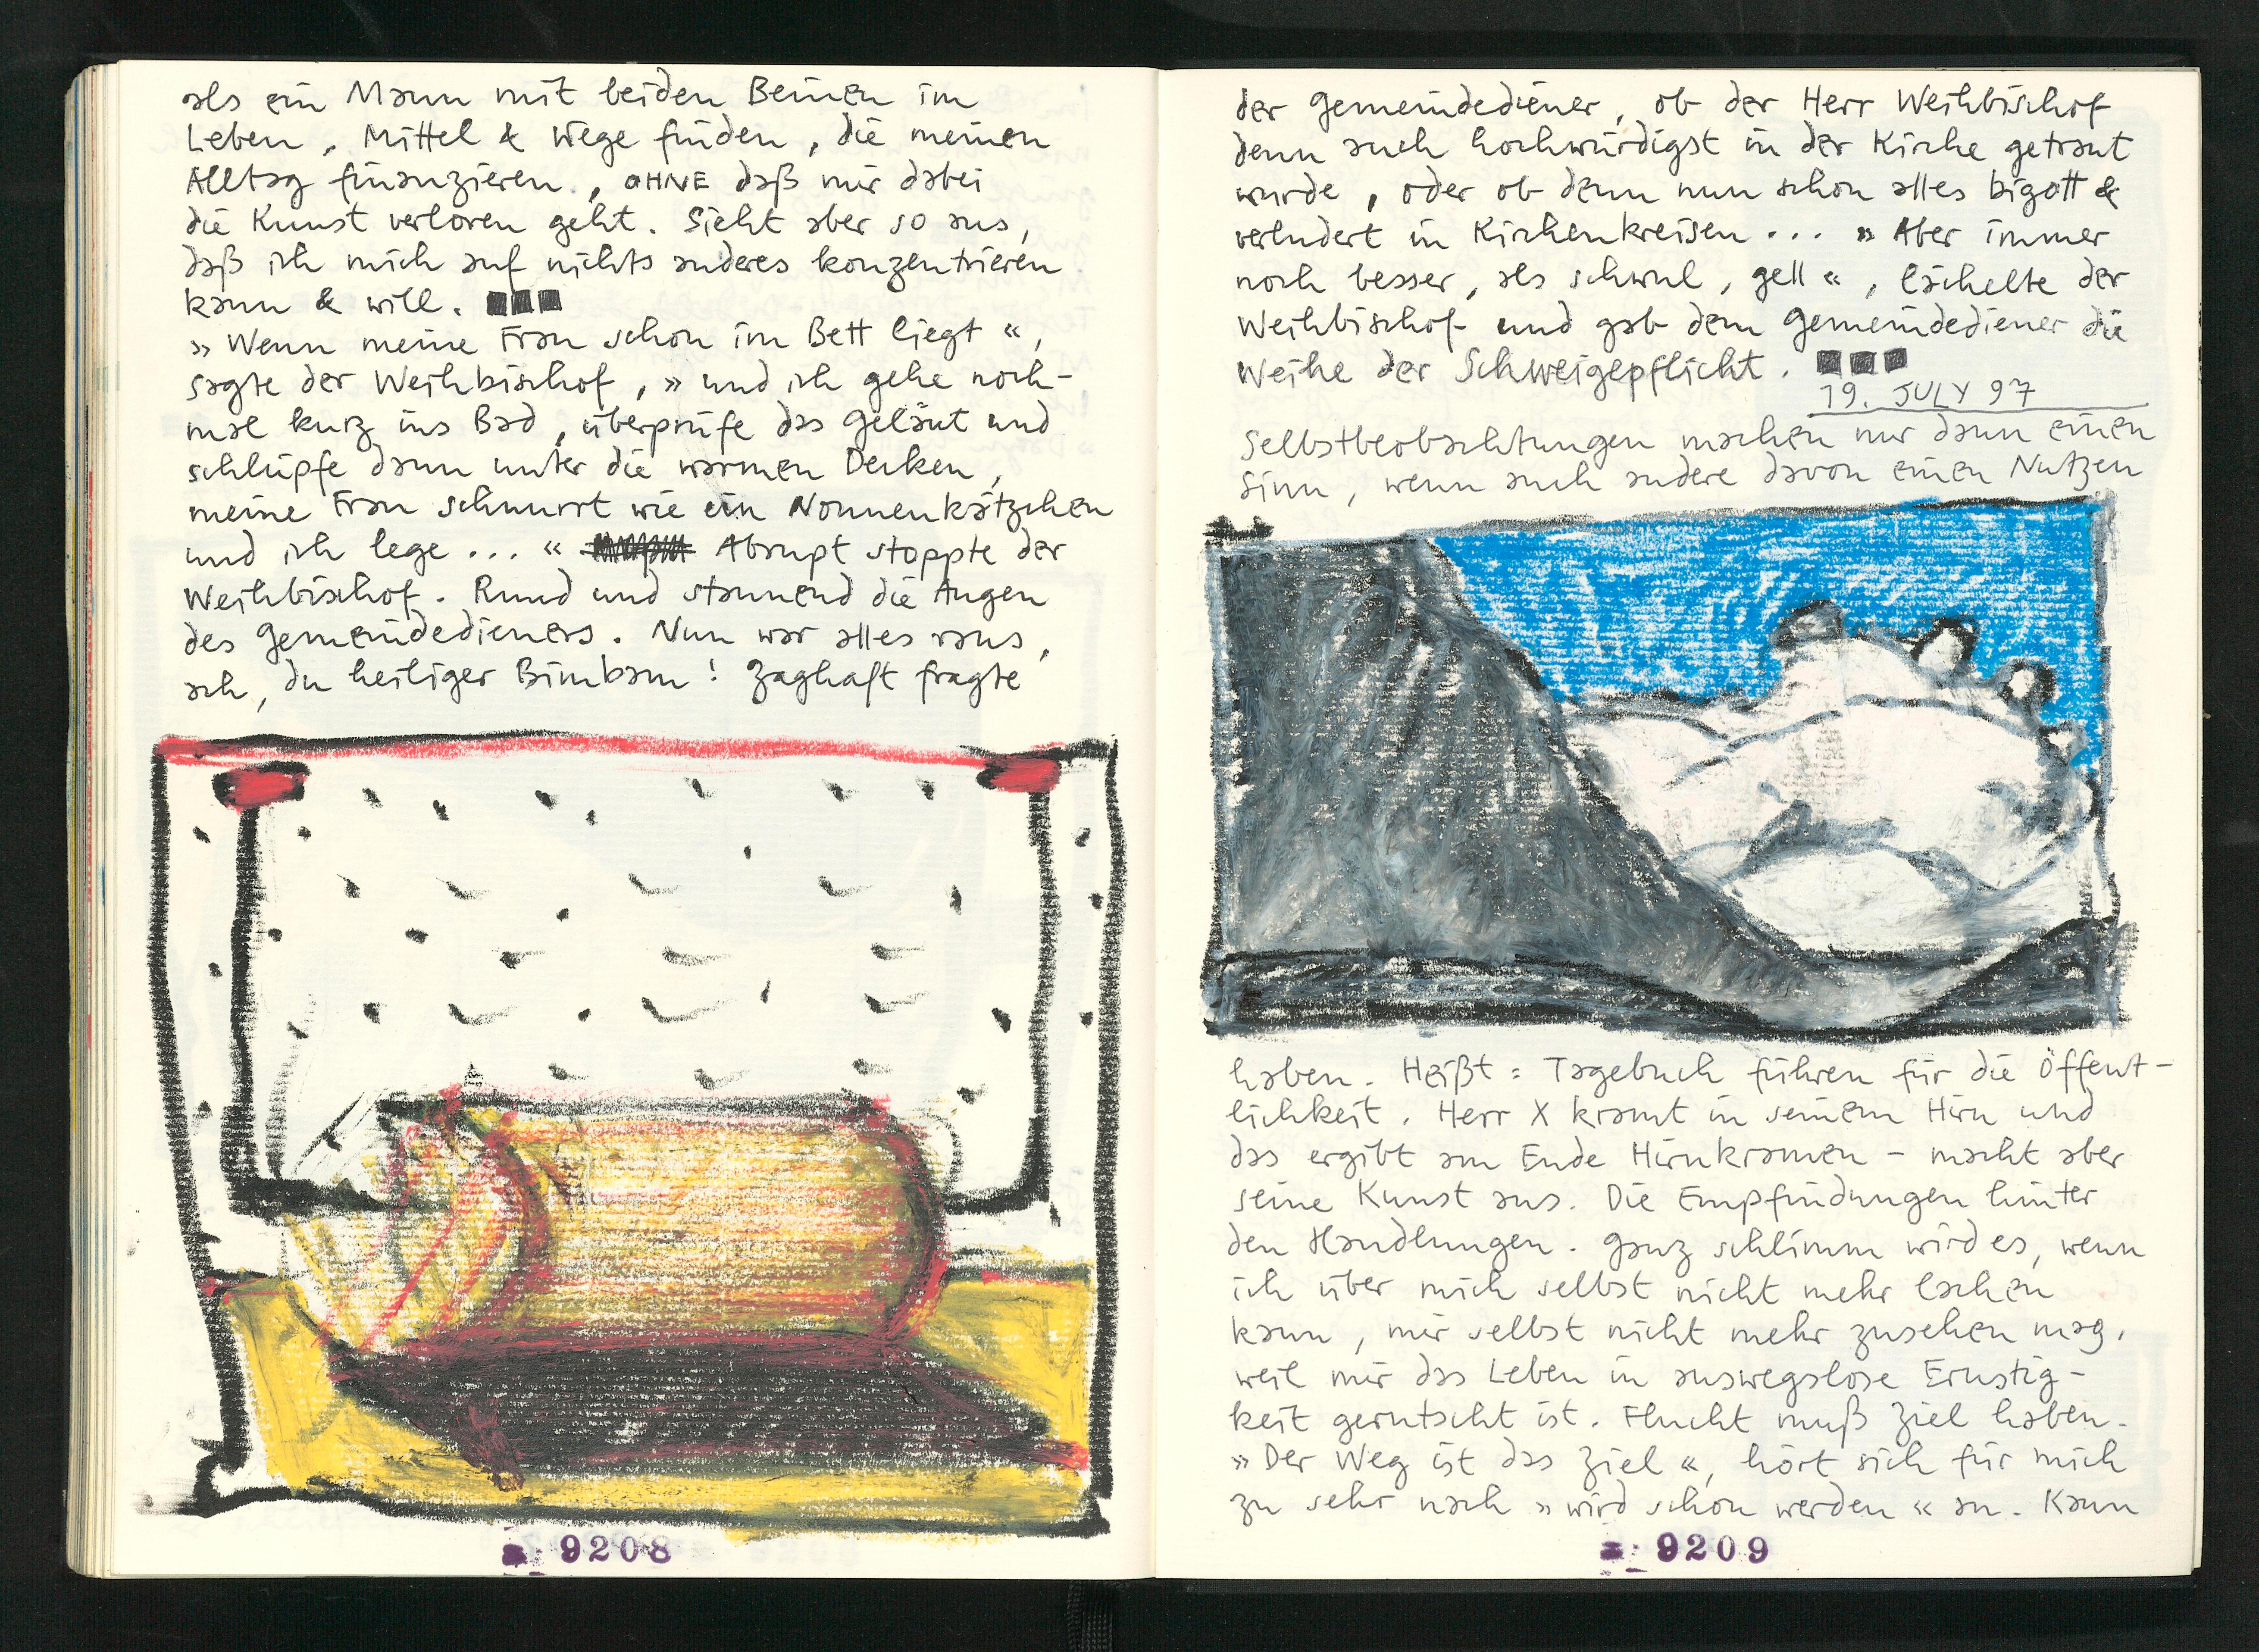 als ein Mann mit beiden Beinen im
Leben, Mittel & Wege finden, die meinen
Alltag finanzieren, OHNE daß mir dabei
die Kunst verloren geht. Sieht aber so aus,
daß ich mich auf nichts anderes konzentrieren
kann & will.
» Wenn meine Frau schon im Bett liegt «,
sagte der Weihbischof, » und ich gehe noch-
mal kurz ins Bad, überprüfe das Geläut und
schlüpfe dann unter die warmen Decken,
meine Frau schnurrt wie ein Nonnenkätzchen
und ich lege ... « Abrupt stoppte der
Weihbischof. Rund und staunend die Augen
des Gemeindedieners. Nun war alles raus,
ach, du heiliger Bimbam! Zaghaft fragte
9208
der Gemeindediener, ob der Herr Weihbischof
denn auch hochwürdigst in der Kirche getraut
wurde, oder ob denn nun schon alles bigott &
verludert in Kirchenkreisen ... » Aber immer
noch besser, als schwul, gell «, lächelte der
Weihbischof und gab dem Gemeindediener die
Weihe der Schweigepflicht.
19. JULY 97
Selbstbeobachtungen machen nur dann einen
Sinn, wenn auch andere davon einen Nutzen
haben. Heißt: Tagebuch führen für die Öffent-
lichkeit. Herr X kramt in seinem Hirn und
das ergibt am Ende Hirnkramen - macht aber
seine Kunst aus. Die Empfindungen hinter
den Handlungen. Ganz schlimm wird es, wenn
ich über mich selbst nicht mehr lachen
kann, mir selbst nicht mehr zusehen mag,
weil mir das Leben in auswegslose Ernstig-
keit gerutscht ist. Flucht muß Ziel haben.
» Der Weg ist das Ziel «, hört sich für mich
zu sehr nach » wird schon werden « an. Kann
9209